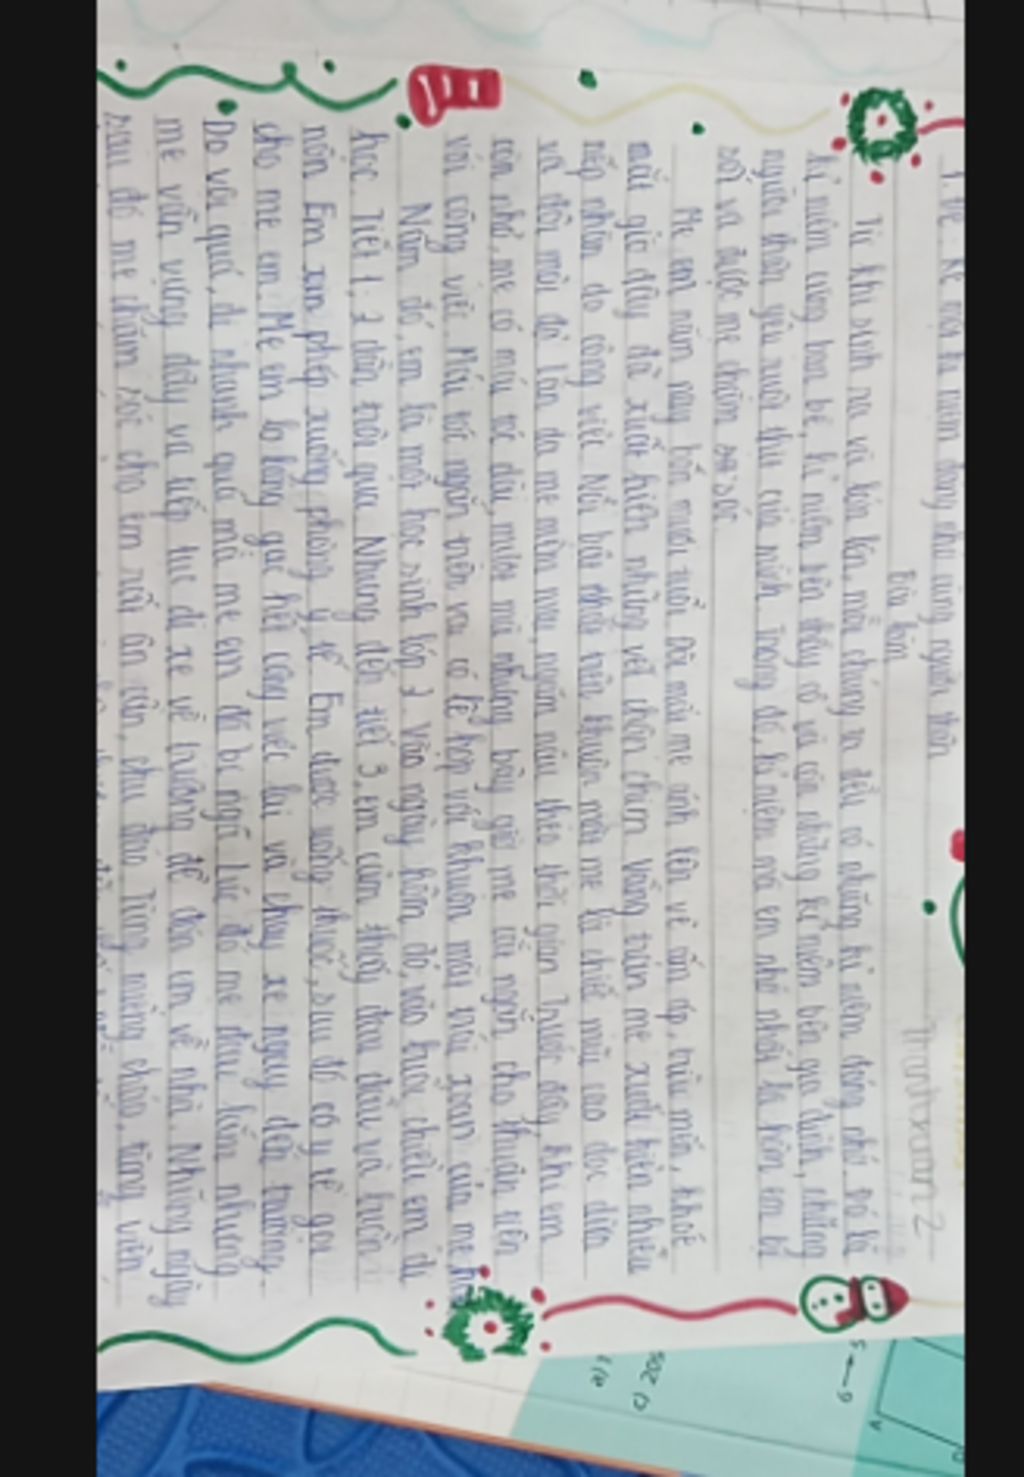 1. Đề: Kể của kỉ niệm đáng nhớ cùng người thân
Bài làm
Từ khi sinh ra và lớn lên, mỗi chúng ta đều có những kỉ niệm đáng nhớ. Đó là
kỉ niệm cùng bạn bè, kỉ niệm bên thầy cô và còn những kỉ niệm bên gia đình, những
người thân yêu ruột thịt của mình. Trong đó, kỉ niệm mà em nhớ nhất là hôm em bị
sốt và được mẹ chăm sóc
Mẹ em năm nay bốn mươi tuổi. Đôi mắt mẹ ánh lên vẻ ấm áp, trìu mến, khoé
mắt giờ đây đã xuất hiện những vết chân chim. Vầng trán mẹ xuất hiện nhiều
nếp nhăn do công việc. Nổi bật nhất trên khuôn mặt mẹ là chiếc mũi cao dọc dừa
và đôi môi đỏ. Làn da mẹ nâu theo thời gian. Trước đây khi em
còn nhỏ, mẹ có mái tóc dài, mượt mà nhưng bây giờ mẹ cắt ngắn cho thuận tiện
với công việc. Mái tóc ngắn trên vai có lẽ hợp với khuôn mặt trái xoan của mẹ
Năm đó, em là một học sinh lớp Vào ngày hôm đó, vào buổi chiều em đi
học. Tiết 1, 2 dần trôi qua. Nhưng đến tiết 3, em cảm thấy đau đầu và buồn
nôn. Em xin phép xuống phòng y tế. Em được uống thuốc, sau đó cô y tế gọi
cho mẹ em. Mẹ em lo lắng gác hết công việc lại và chạy xe ngay đến trường.
Do vội quá, đi nhanh quá mà mẹ em đã bị ngã. Lúc đó mẹ đau lắm nhưng
mẹ vẫn vùng dậy và tiếp tục đi xe về trường để đón em về nhà. Những ngày
sau đó mẹ chăm sóc cho em rất ân cần, chu đáo. Từng miếng cháo, từng viên
Thanhxuan2
a)
c) 205